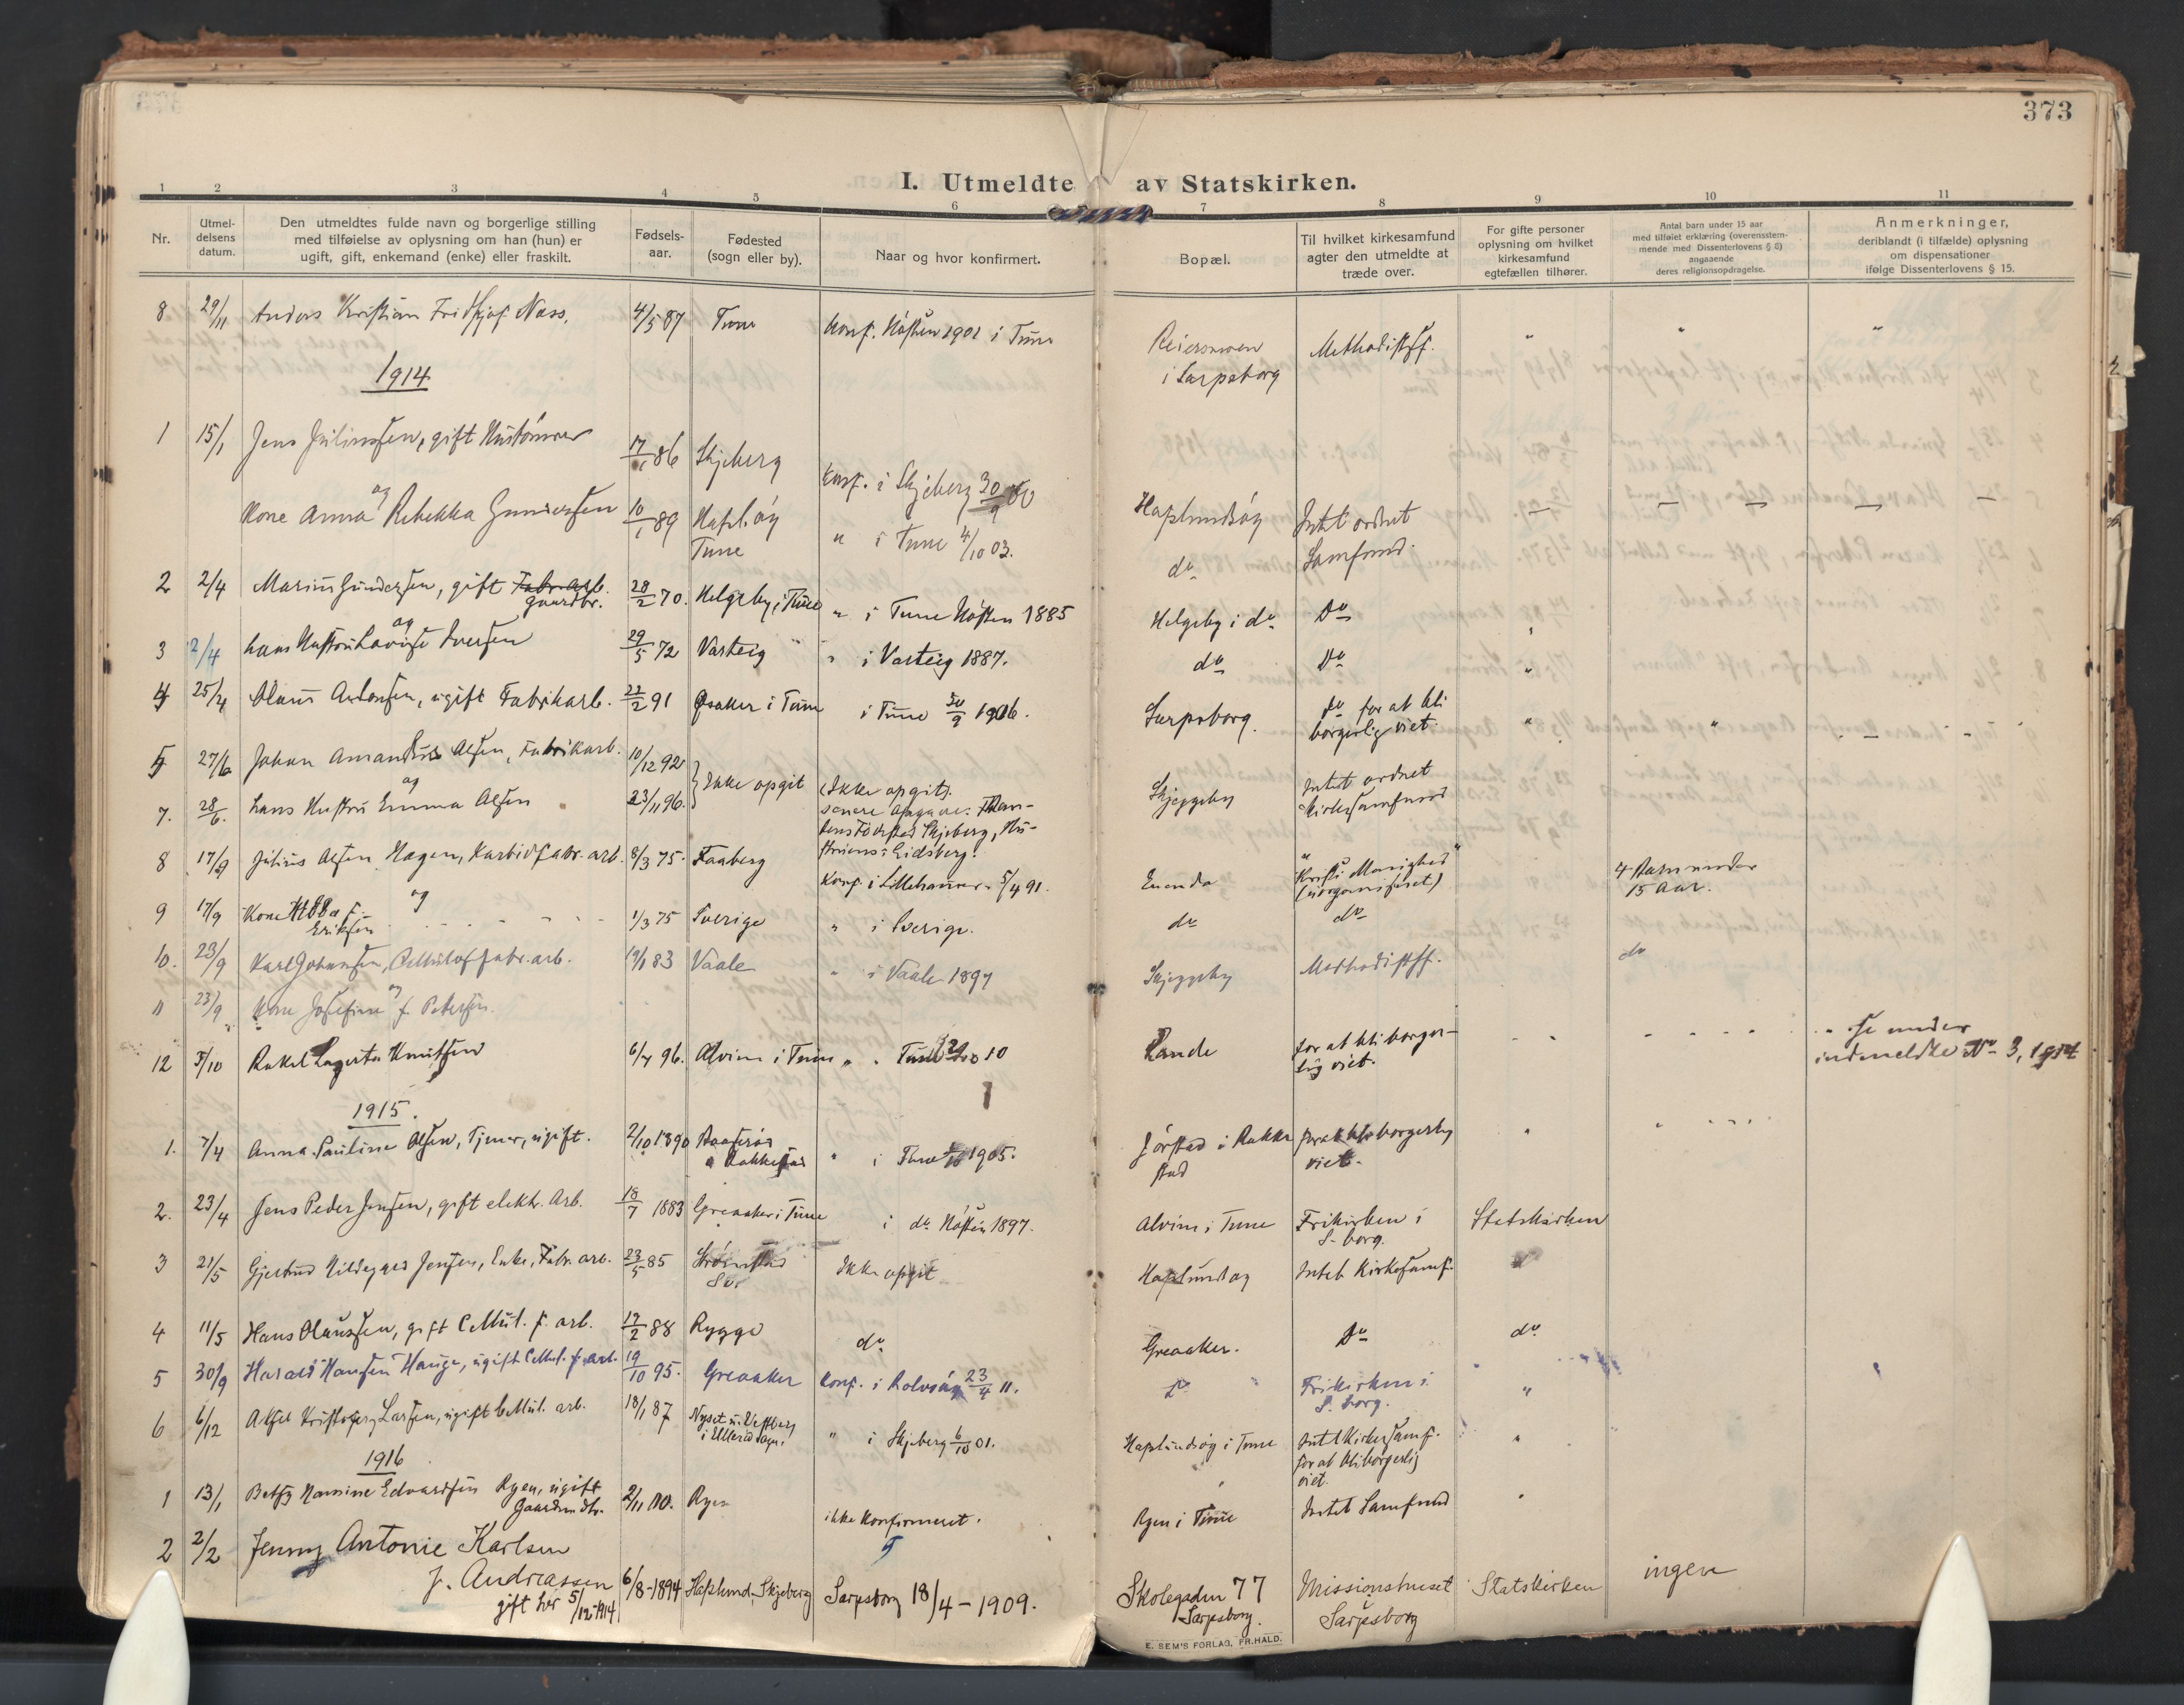 373
I. Utmeldte av Statskirken.
1 2 3 4 5 6 7 8 9 10 11
Nr.
Utmel-
delsens
datum.
Den utmeldtes fulde navn og borgerlige stilling
med tilføielse av oplysning om han (hun) er
ugift, gift, enkemand (enke) eller fraskilt.
Fødsels-
aar.
Fødested
(sogn eller by).
Naar og hvor konfirmert.
Bopæl.
Til hvilket kirkesamfund
agter den utmeldte at
træde over.
For gifte personer
oplysning om hvilket
kirkesamfund
egtefællen tilhører.
Antal barn under 15 aar
med tilføiet erklæring (overensstem-
mende med Dissenterlovens § 8)
angaaende
deres religionsopdragelse.
Anmerkninger,
deriblandt (i tilfælde) oplysning
om dispensationer
ifølge Dissenterlovens § 15.
8 29/11 Anders Kristian Fridtjof Næss, 4/5 87 Tune konf. Høsten 1901 i Tune
i Sarpsborg Methodistf. " " "
1914
1 15/1 Jens Juliussen, gift 17/1 86 Skjeberg konf. i Skjeberg 30/9 00
og
Kone Anna Rebekka Gundersen 10/1 89 Hafsl.øy " i Tune 4/10 03. Haplundsøy Intet ordnet — — —
Tune do Samfund.
2 2/4 Marius Gundersen, gift Fabr.arb. 28/2 70. Helgeby i Tune " i Tune Høsten 1885 Helgeby i do Do
gaardbr.
og
3 2/4 hans Hustru Lovise Iversen 29/5 72 Varteig " i Varteig 1887. do Do "
4 25/4 Olaus Antonsen, ugift Fabrikarb. 22/2 91 Opsaker i Tune i Tune 30/9 1906. Sarpsborg. do for at bli
borgerlig viet. " "
5 27/6 Johan Amandus Olsen, Fabrikarb. 10/12 92 Ikke opgit (Ikke opgit). Skjeggeby Intet ordnet
og
7. 28/6. hans Hustru Emma Olsen 23/11 96. senere opgave: Man-
dens Fødested Skjeberg, Hu-
struens: Eidsberg.
Kirkesamfund
8 17/9 Julius Olsen Hagen, Karbidfabr. arb. 8/3 75. Faaberg Konf. i Lillehammer 5/4 91. Enenda "Kristi Menighed"
(uorganiseret) 4 Barn under
15 Aar.
og
9 17/9 Kone Hilda f. 1/3 75 Sverige " i Sverige. do do
Eriksen
10. 23/9 Karl Johansen, Cellulosefabr. arb. 19/1 83 Vaale " i Vaale 1897 Skjeggeby Methodistf. do
og
11 23/9 Kone Josefine f. Petersen.
12 5/10 Rakel Lagerta Knutsen 6/4 96. Alvim i Tune " . Tune 10 Rande for at bli borger-
lig viet. se under
indmeldte No 3, 1914
1915.
1. 7/4 Anna Pauline Olsen, Tjener, ugift. 2/10 1890 Rakkestad " i Tune 1905. Jørstad i Rakke
stad for at bli borgerlig
viet.
2. 23/4 Jens Peder Jensen, gift elektr. Arb. 18/7 1883 Greaaker i Tune i do Høsten 1897. Alvim i Tune Frikirken i
S-borg. Statskirken
3 21/5 Gjertrud Hildegard Jensen, Enke, Fabr. arb. 23/5 85 Strømstad Ikke opgit Haplundøy Intet Kirkesamf.
4 11/5 Hans Olaussen, gift Cellul. f. arb. 17/2 88 Rygge do Greaaker. Do do
5 30/9 Harald Hansen Hauge, ugift Cellul. f. arb. 19/10 95. Greaaker konf. i Rolvsøy 23/4 11. Do Frikirken i
S.borg. "
6 6/12 Aksel Kristoffer Larsen, ugift Cellul. arb. 18/1 87 Nyset " i Skjeberg 6/10 01. Haplundsøy i Tune Intet Kirkesamf.
for at bli borgerlig
viet. "
1916
1 13/1 Betsy Hansine Edvardsen Ryen, ugift 2/11 80. Ryen ikke konfirmeret. Ryen i Tune Intet Samfund
2 2/2 Jenny Antonie Karlsen
f. Andreassen 6/8-1894 Haplund, Skjeberg Sarpsborg 18/4-1909. Skolegaden 77 Missionshuset Statskirken ingen
gift her 5/12-1914 Sarpsborg. Sarpsborg
E. SEM'S FORLAG, FR.HALD.